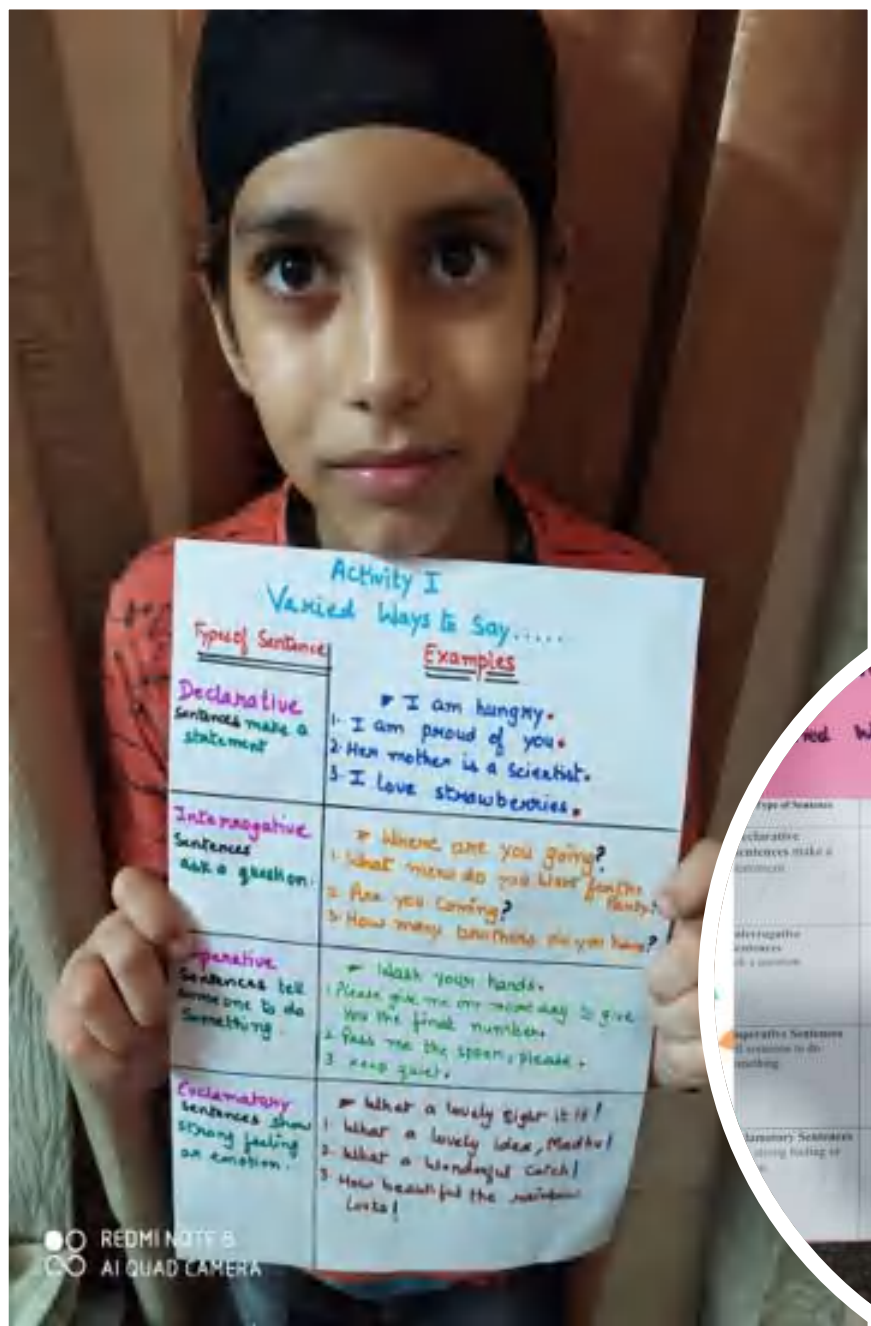 Activity I
Varied Ways to Say.....
Types of Sentence
Examples
Declarative
Sentences make a
statement
➤ I am hungry.
1. I am proud of you.
2. Her mother is a scientist.
3. I love strawberries.
Interrogative
Sentences
ask a question.
➤ Where are you going?
1. What menu do you want for the
Party?
2. Are you coming?
3. How many brothers do you have?
perative
Sentences tell
someone to do
Something.
➤ Wash your hands.
1. Please give me one more day to give
you the final number.
2. Pass me the spoon, please.
3. Keep quiet.
Exclamatory
Sentences show
strong feeling
or emotion.
➤ What a lovely sight it is!
1. What a lovely idea, Madhu!
2. What a wonderful catch!
3. How beautiful the rainbow
looks!
REDMI NOTE 8
AI QUAD CAMERA
Type of Sentence
eclarative
entences make a
tatement
nterrogative
entences
k a question
mperative Sentences
ll someone to do
mething
lamatory Sentences
strong feeling or